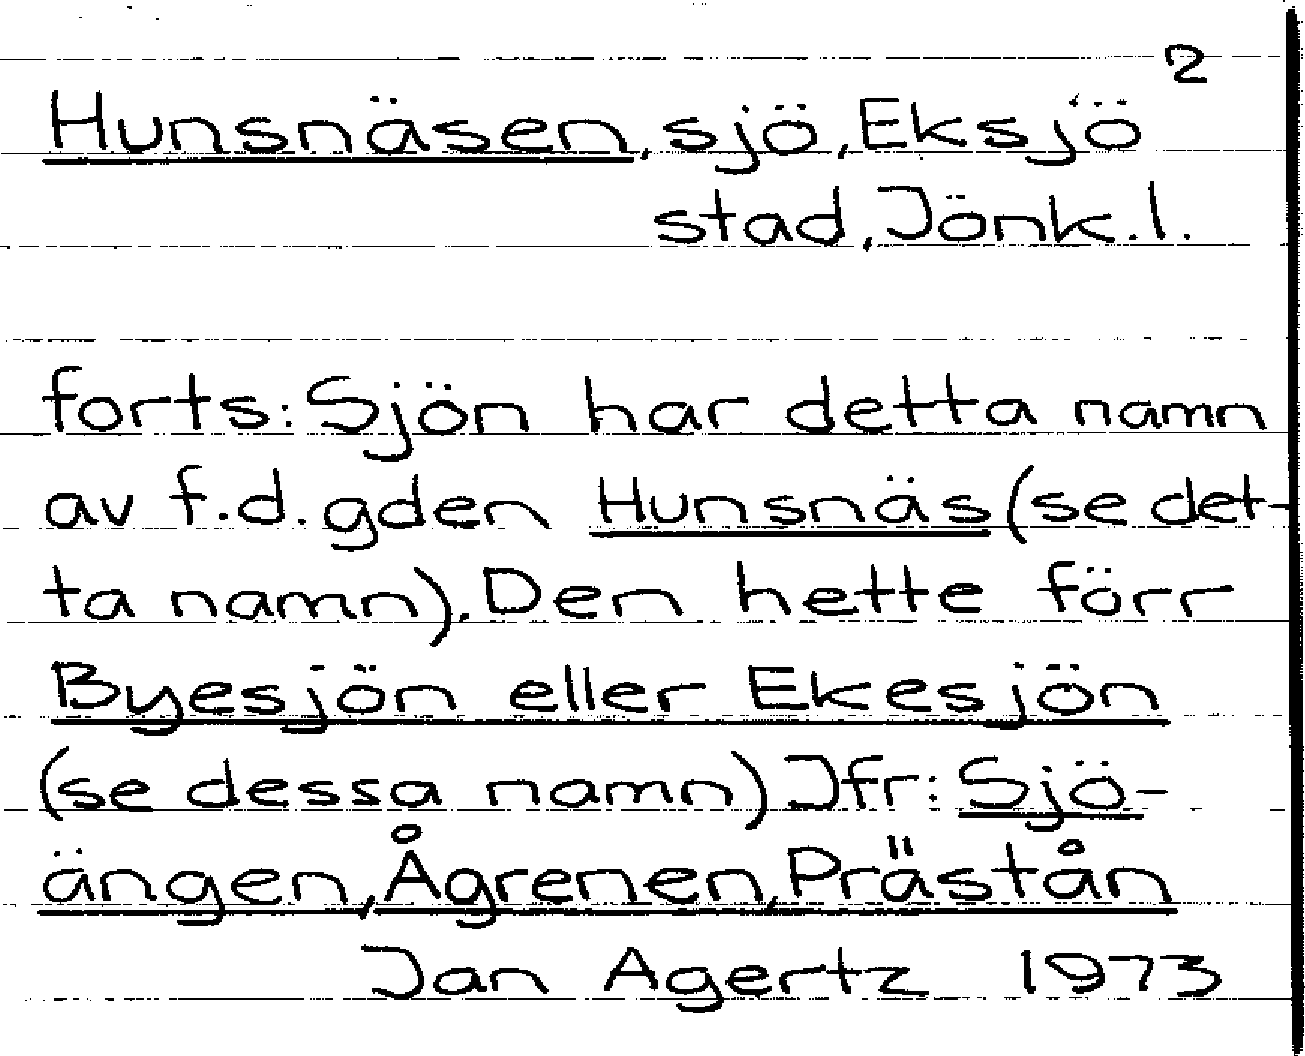 2
Hunsnäsen, sjö, Eksjö
stad, Jönk.l.
forts: Sjön har detta namn
av f.d. gden Hunsnäs (se det-
ta namn). Den hette förr
Byesjön eller Ekesjön
(se dessa namn) Jfr: Sjö-
ängen, Ågrenen, Prästån
Jan Agertz 1973